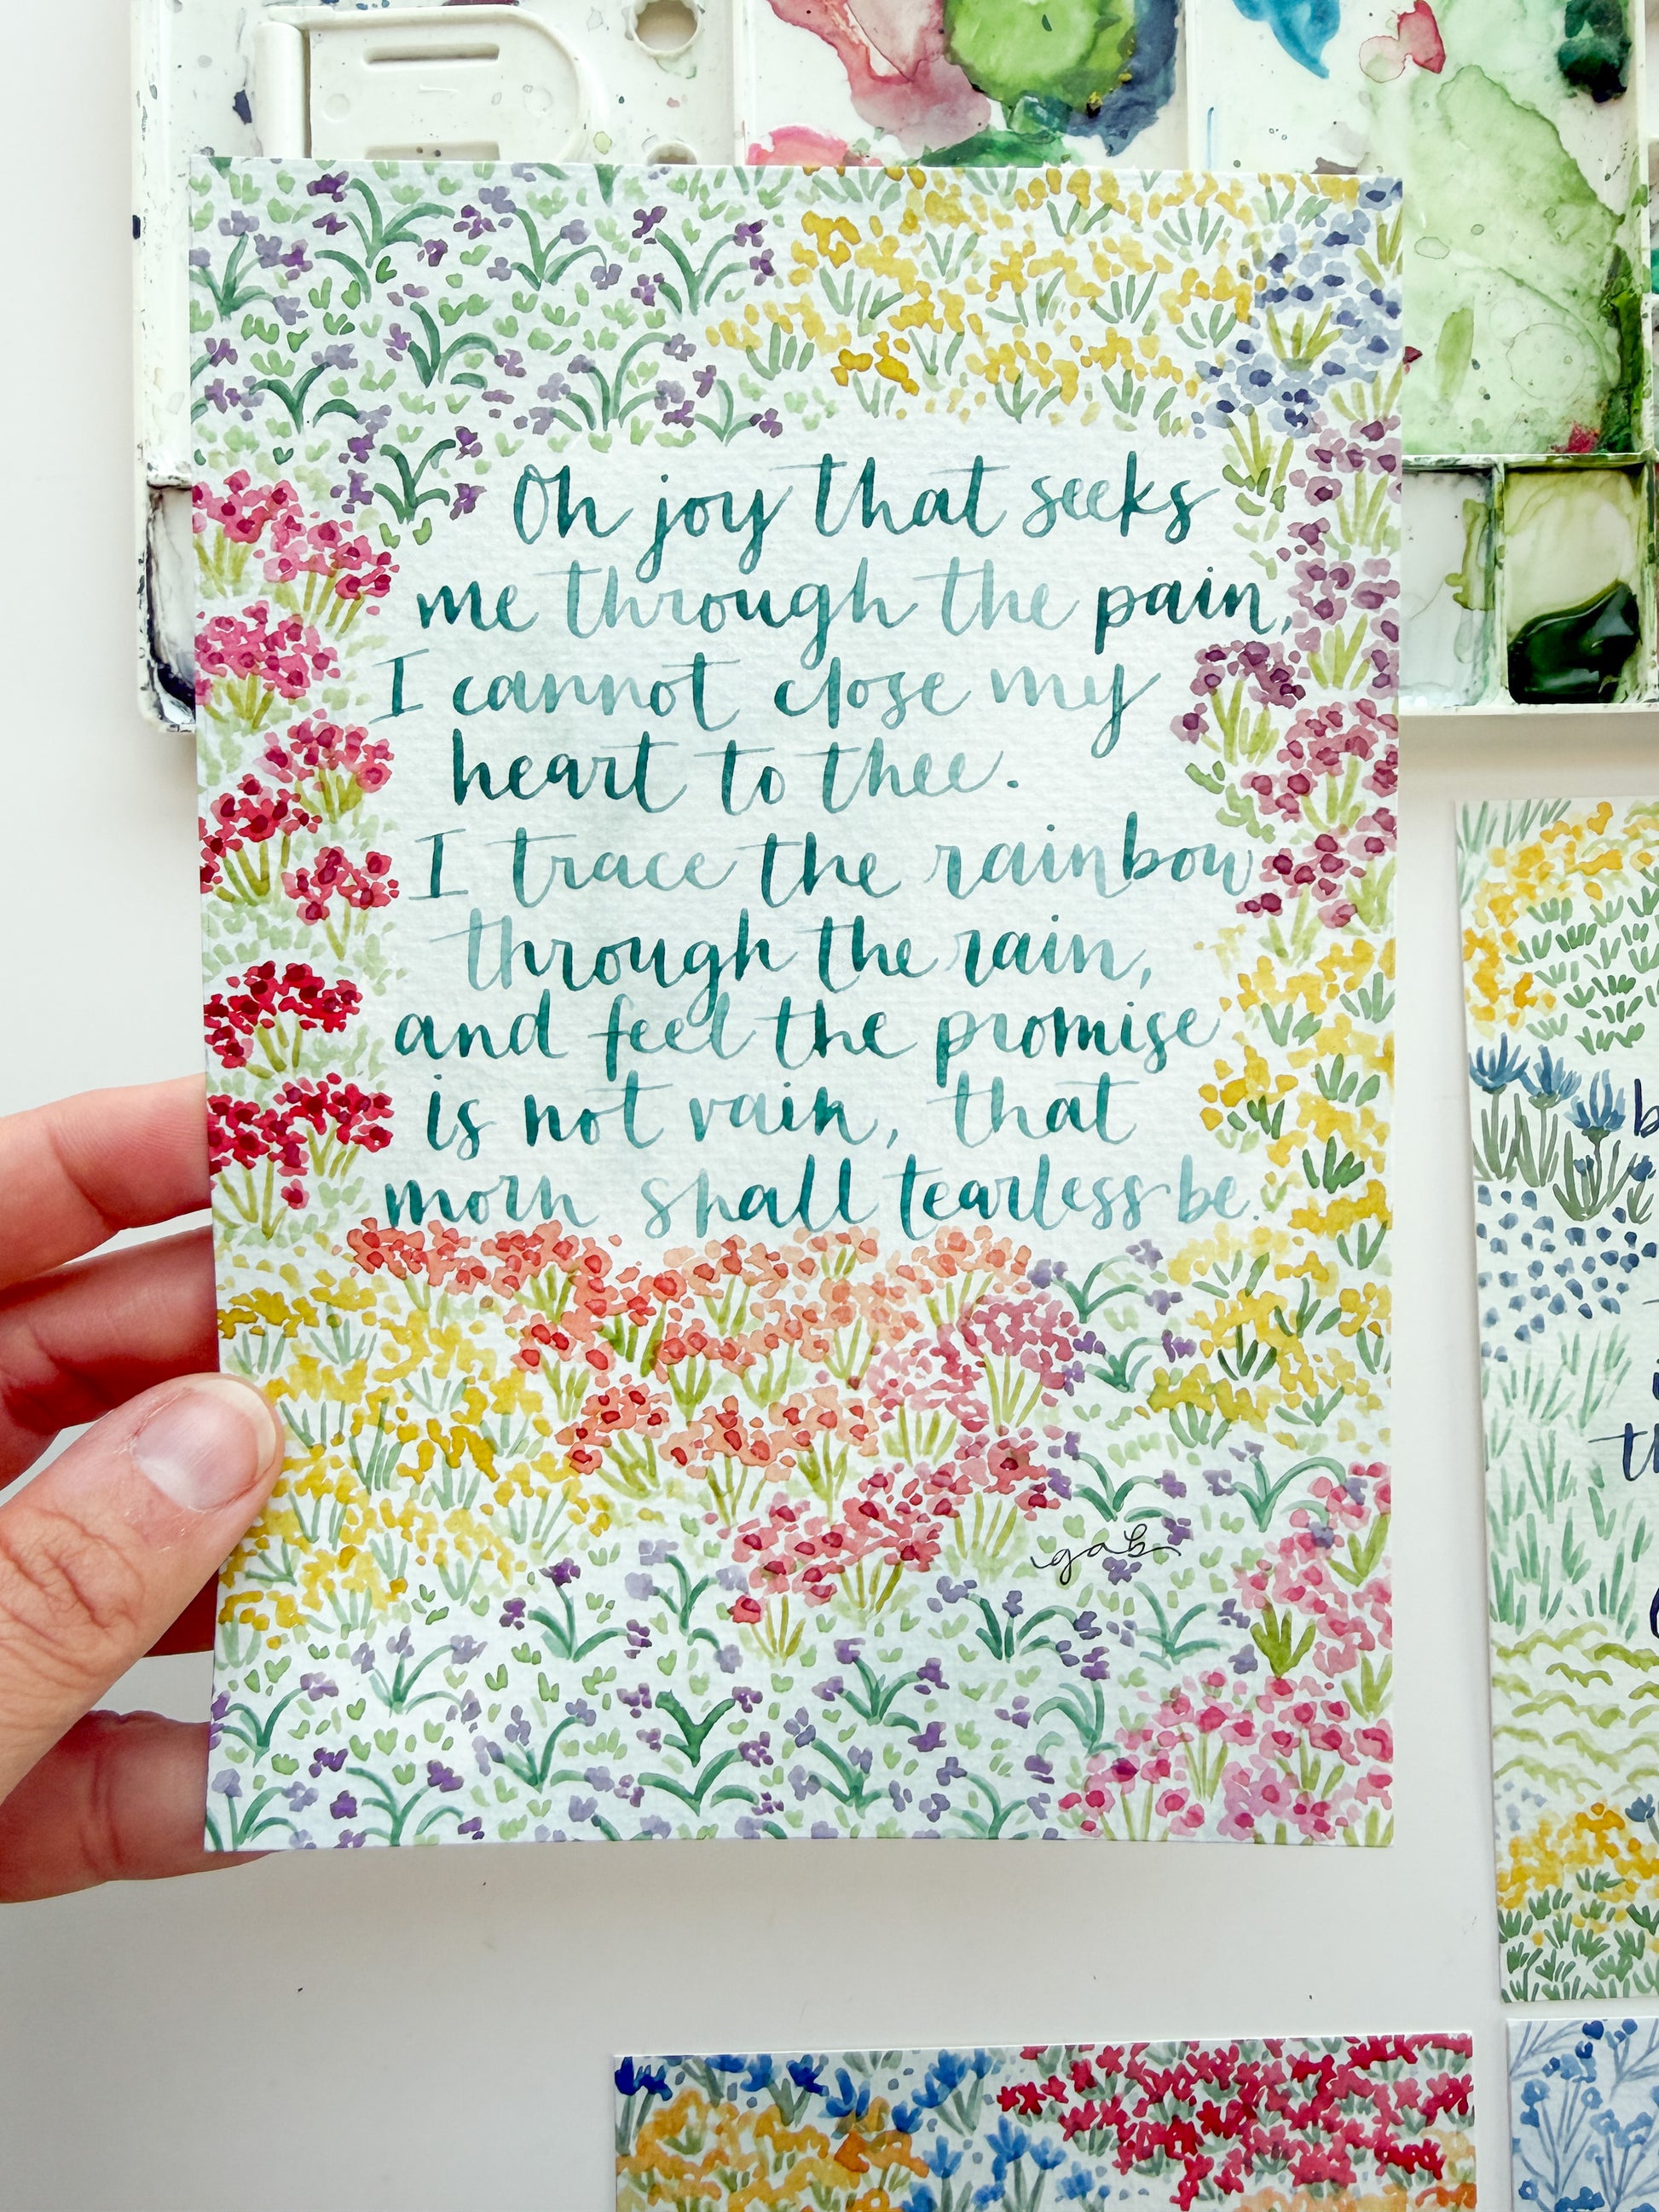 Oh joy that seeks
me through the pain,
I cannot close my
heart to thee.
I trace the rainbow
through the rain,
and feel the promise
is not vain, that
morn shall tearless be.
gab